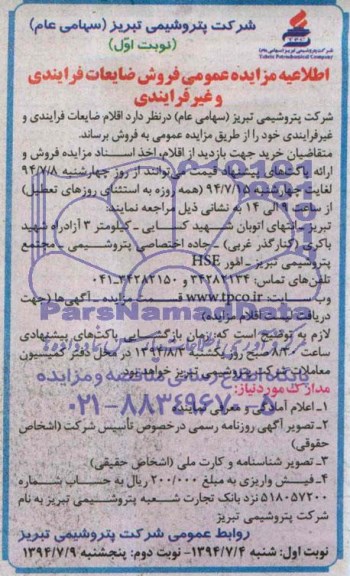 شرکت پتروشیمی تبریز (سهامی عام)
(نوبت اوّل)
شرکت پتروشیمی تبریز (سهامی عام)
Tabriz Petrochemical Company
اطلاعیه مزایده عمومی فروش ضایعات فرایندی
و غیر فرایندی
شرکت پتروشیمی تبریز (سهامی عام) درنظر دارد اقلام ضایعات فرایندی و
غیرفرایندی خود را از طریق مزایده عمومی به فروش برساند.
متقاضیان خرید جهت بازدید از اقلام، اخذ اسناد مزایده فروش و
ارائه پاکت‌های پیشنهاد قیمت می‌توانند از روز چهارشنبه ۹۴/۷/۸
لغایت چهارشنبه ۹۴/۷/۱۵ (همه روزه به استثنای روزهای تعطیل)
از ساعت ۹ الی ۱۴ به نشانی ذیل مراجعه نمایند:
تبریز ـ انتهای اتوبان شهید کسایی ـ کیلومتر ۳ آزادراه شهید
باکری (کنارگذر غربی) ـ جاده اختصاصی پتروشیمی ـ مجتمع
پتروشیمی تبریز ـ امور HSE
تلفن‌های تماس: ۳۴۲۸۲۲۳۴ و ۳۴۲۸۳۱۵۰-۰۴۱
وب سایت: www.tpco.ir قسمت مزایده ـ آگهی‌ها (جهت
دریافت لیست اقلام مزایده)
لازم به توضیح است که زمان بازگشایی پاکت‌های پیشنهادی
ساعت ۸/۳۰ صبح روز یکشنبه ۱۳۹۴/۸/۳ در محل دفتر کمیسیون
معاملات شرکت پتروشیمی تبریز خواهد بود.
مدارک مورد نیاز:
۱ـ اعلام آمادگی و معرفی نماینده
۲ـ تصویر آگهی روزنامه رسمی درخصوص تأسیس شرکت (اشخاص
حقوقی)
۳ـ تصویر شناسنامه و کارت ملی (اشخاص حقیقی)
۴ـ فیش واریزی به مبلغ ۲۰۰/۰۰۰ ریال به حساب شماره
۵۱۸۰۵۷۲۰۰ نزد بانک تجارت شعبه پتروشیمی تبریز به نام
شرکت پتروشیمی تبریز
روابط عمومی شرکت پتروشیمی تبریز
نوبت اول: شنبه ۱۳۹۴/۷/۴- نوبت دوم: پنجشنبه ۱۳۹۴/۷/۹
ParsNamadData
۰۲۱-۸۸۳۴۹۶۷۰-۵